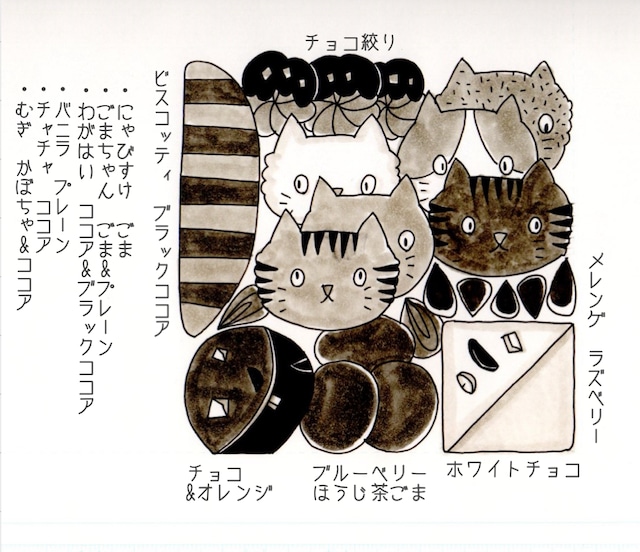 チョコ絞り
メレンゲ ラズベリー
ビスコッティ ブラックココア
・にゃびすけ ごま
・ごまちゃん ごま&プレーン
・わがはい ココア&ブラックココア
・バニラ プレーン
・チャチャ ココア
・むぎ かぼちゃ&ココア
チョコ
&オレンジ
ブルーベリー
ほうじ茶ごま
ホワイトチョコ